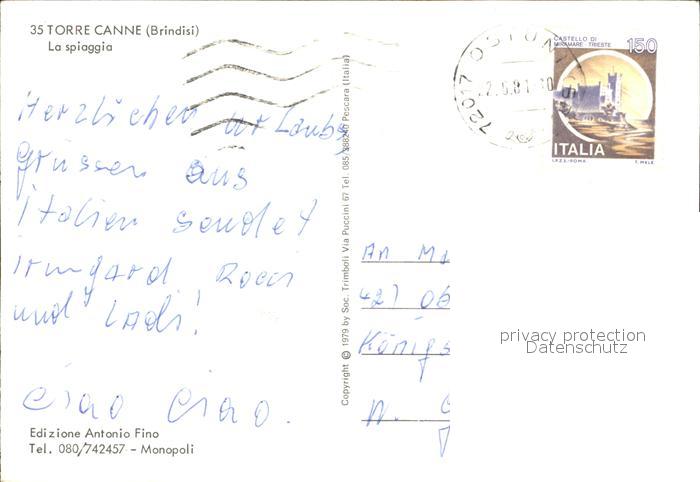 35 TORRE CANNE (Brindisi)
La spiaggia
Herzlichen Urlaubs
grüssen aus
Italien sendet
irmgard, Rocci
und Ladi!
Ciao Ciao.
Edizione Antonio Fino
Tel. 080/742457 – Monopoli
Copyright © 1979 by Soc. Trimboli Via Puccini 67 Tel. 085/388240 Pescara (Italia)
72017 OSTUNI
2.6.81.10
CASTELLO DI
MIRAMARE TRIESTE
150
ITALIA
I.P.Z.S.-ROMA
T. MELE
An
427 Ob
Königs
W.
privacy protection
Datenschutz